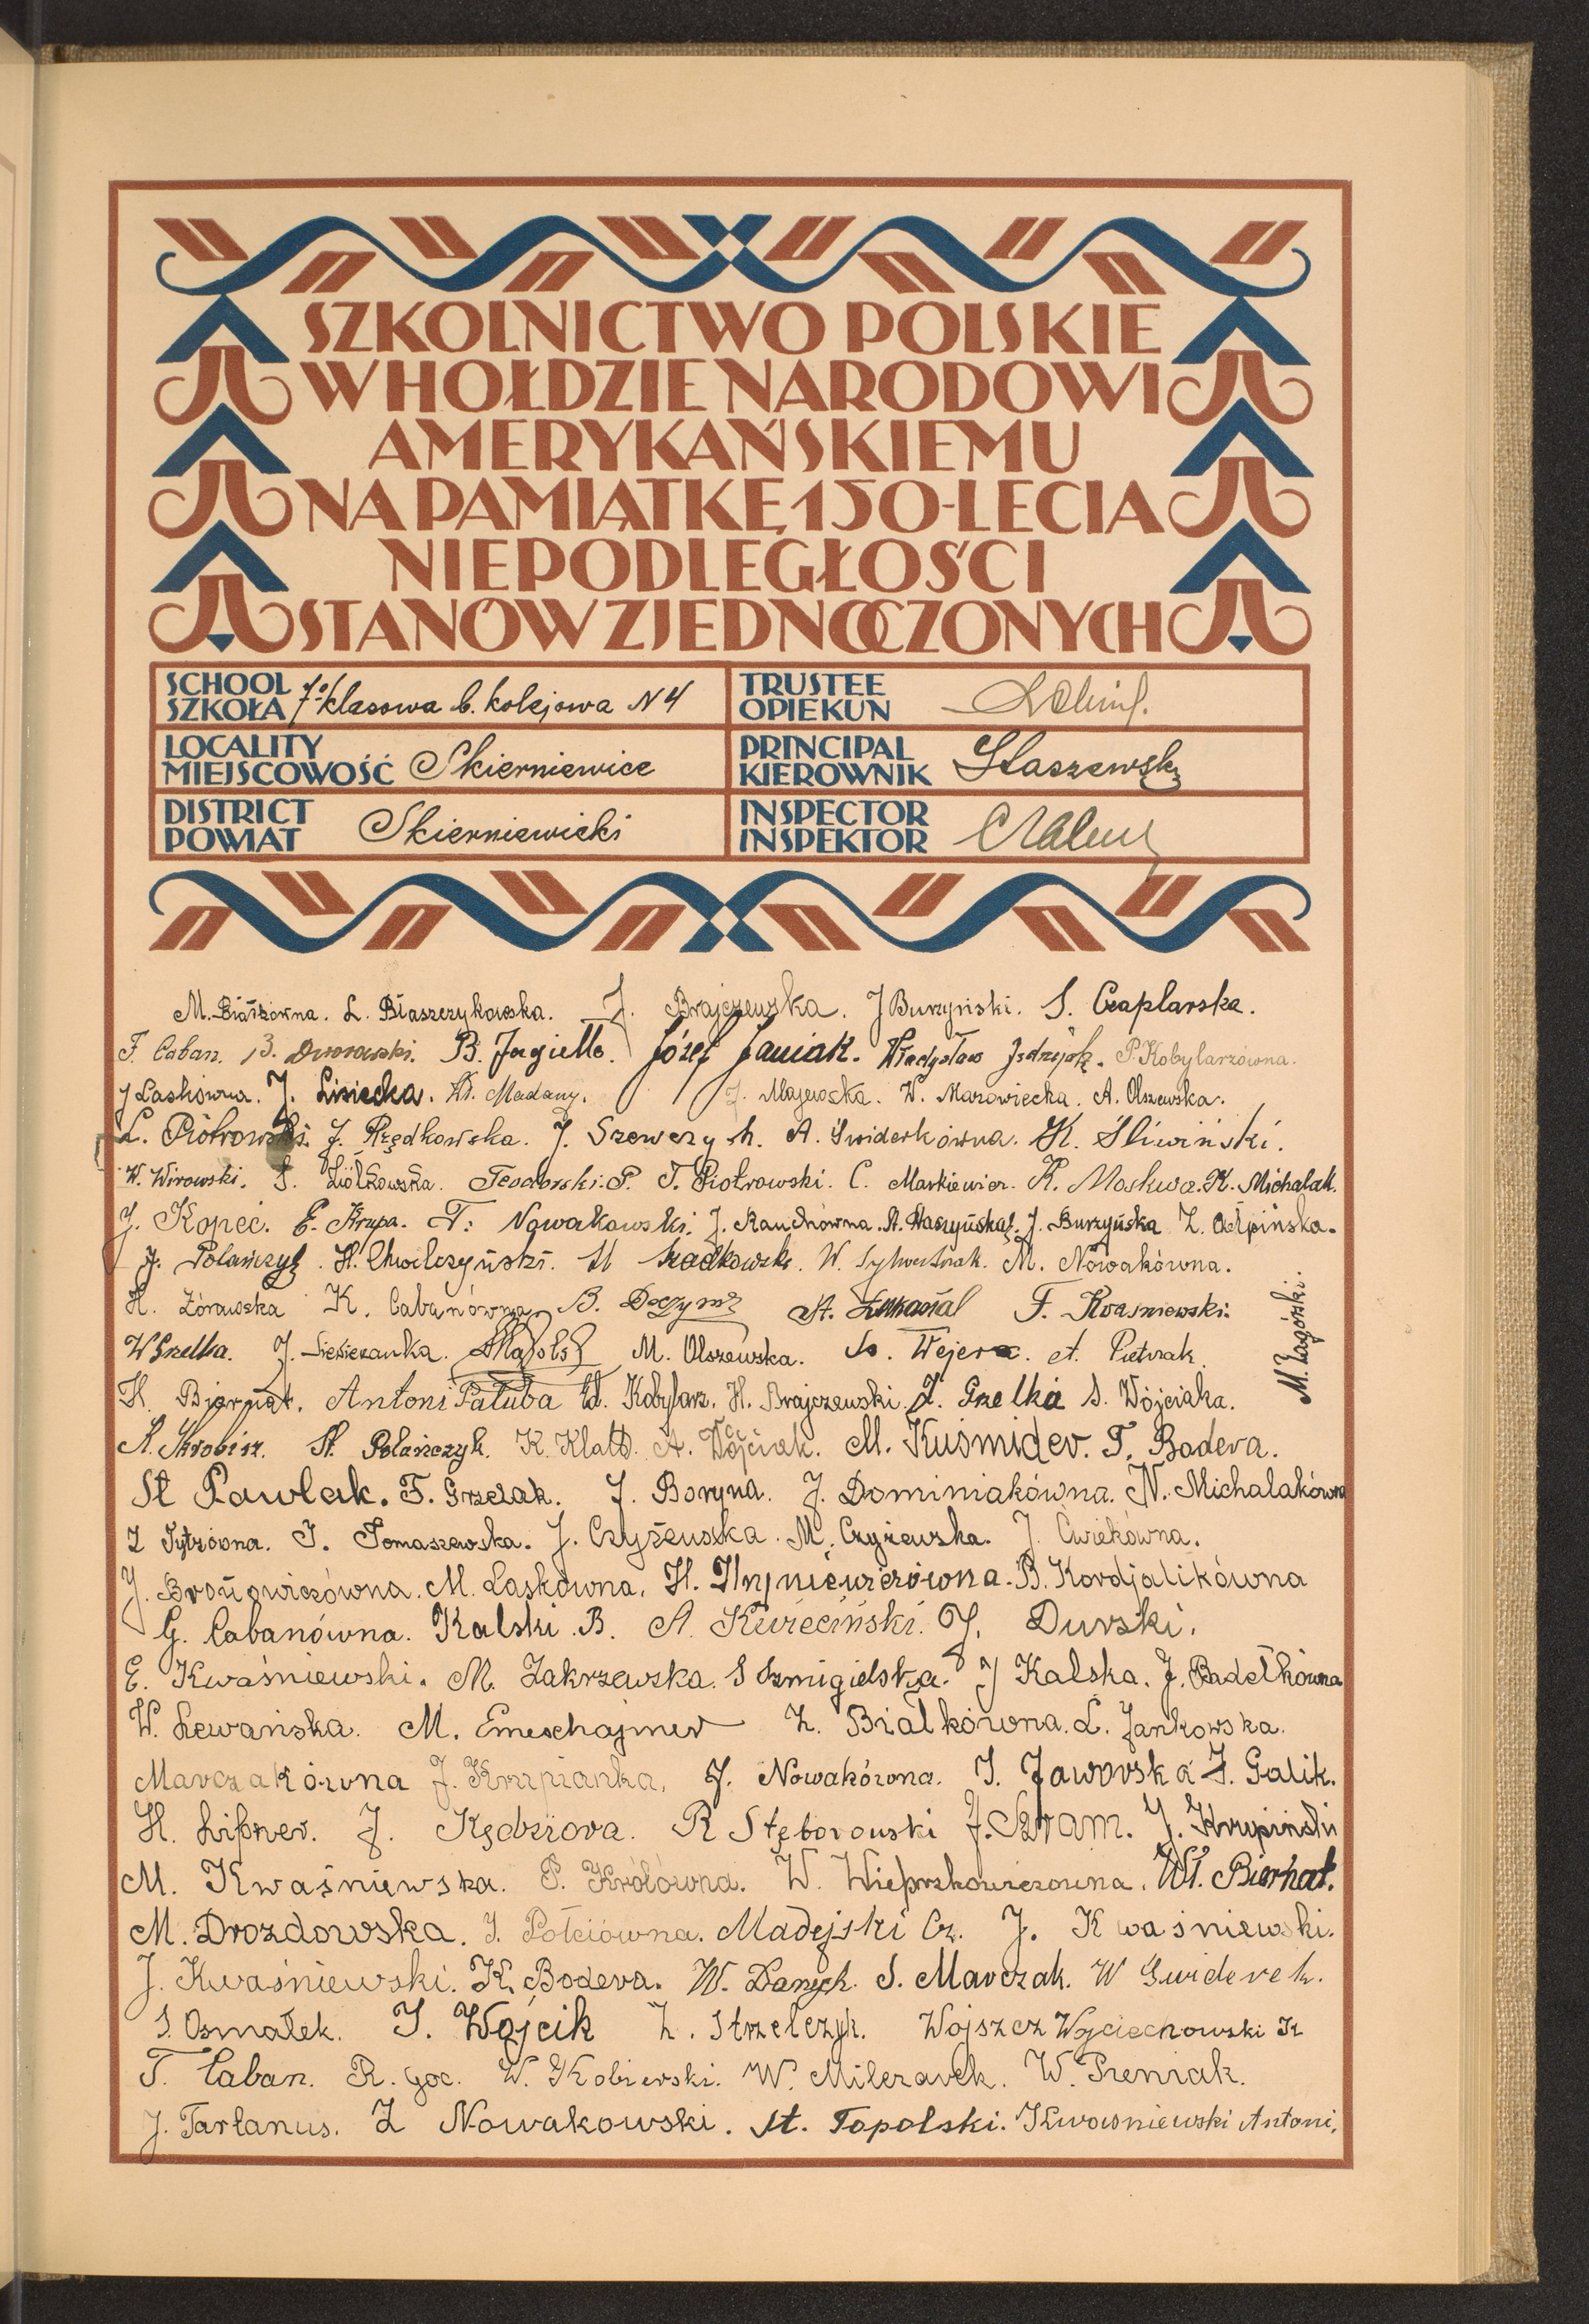 SZKOLNICTWO POLSKIE
W HOŁDZIE NARODOWI
AMERYKAŃSKIEMU
NA PAMIĄTKĘ 150-LECIA
NIEPODLEGŁOŚCI
STANÓW ZJEDNOCZONYCH
SCHOOL
SZKOŁA 7-klasowa b. kolejowa N 4
TRUSTEE
OPIEKUN
LOCALITY
MIEJSCOWOŚĆ Skierniewice
PRINCIPAL
KIEROWNIK Staszewski
DISTRICT
POWIAT Skierniewicki
INSPECTOR
INSPEKTOR
M. Białkówna. L. Błaszczykowska. J. Brajczewska. J Burzyński. S. Czaplarska.
F. Caban. B. Dworawski. B. Jagiełło. Józef Janiak. Władysław Jędrejek. P. Kobylarzówna.
J Laskówna. J. Lisiecka. Wł. Madany. J. Majewska. W. Mazowiecka. A. Olszewska.
L. Piotrowski. J. Rzędkowska. J. Szewczyk. A. Świderkówna. K. Śliwiński.
W. Wirowski. S. Ziółkowska. Teodorski. P. T. Piotrowski. C. Markiewicz. K. Moskwa. K. Michalak.
J. Kopeć. E. Krupa. T. Nowakowski. J. Rauchówna. A. Staszyńska. J. Burzyńska Z. Cierpińska.
J. Polańczyk. H. Chwilczyński. St Rzadkowski. W. Sylwestrzak. M. Nowakówna.
H. Żórawska K. Cabanówna B. St. Łukasial F. Kwasniewski.
M. Zagórski.
W Grelka. J. M. Olszewska. W. Wejera. A. Pietrzak.
H. Biernat. Antoni Patuba Ed. Kobylarz. H. Brajczewski. Z. Grelka S. Wójciaka.
A. Skrobisz. St. Polańczyk. K. Klatt. A. Wójciak. M. Kuśmider. T. Badera.
St Pawlak. F. Grzelak. J. Boryna. J. Dominiakówna. N. Michalakówna
Z Tytzówna. I. Tomaszewska. J. Czyżewska. M. Czyżewska. J. Ćwiekówna.
J. Bronowiczówna. M. Laskówna. H. Hryniewiczówna. B. Kordjalikówna
G. Cabanówna. Kalski. B. A. Kwieciński. J. Durski.
E. Kwaśniewski. M. Zakrzewska. S Szmigielska. J Kalska. J. Badełkówna
W. Lewańska. M. Emeschajmer Z. Białkówna. L. Jankowska.
Marczakówna J. Krupianka. J. Nowakówna. I. Jaworska J. Galik.
H. Lipner. J. Kędziora. R Stęborowski J. Szram. J. Krupiński
M. Kwaśniewska. P. Królówna. W. Wieprzkowiczówna. Wł. Biernat.
M. Drozdowska. J. Połciówna. Madejski Cz. J. Kwaśniewski.
J. Kwaśniewski. K. Bodera. W. Danych. S. Marczak. W Świderek.
S. Osmałek. J. Wójcik Z. Strzelczyk. Wojszcz Wojciechowski St
T. Caban. R. Goc. W. Kobierski. W. Milczarek. W. Pieniak.
J. Tarłanus. Z Nowakowski. St. Topolski. Kwaśniewski Antoni.